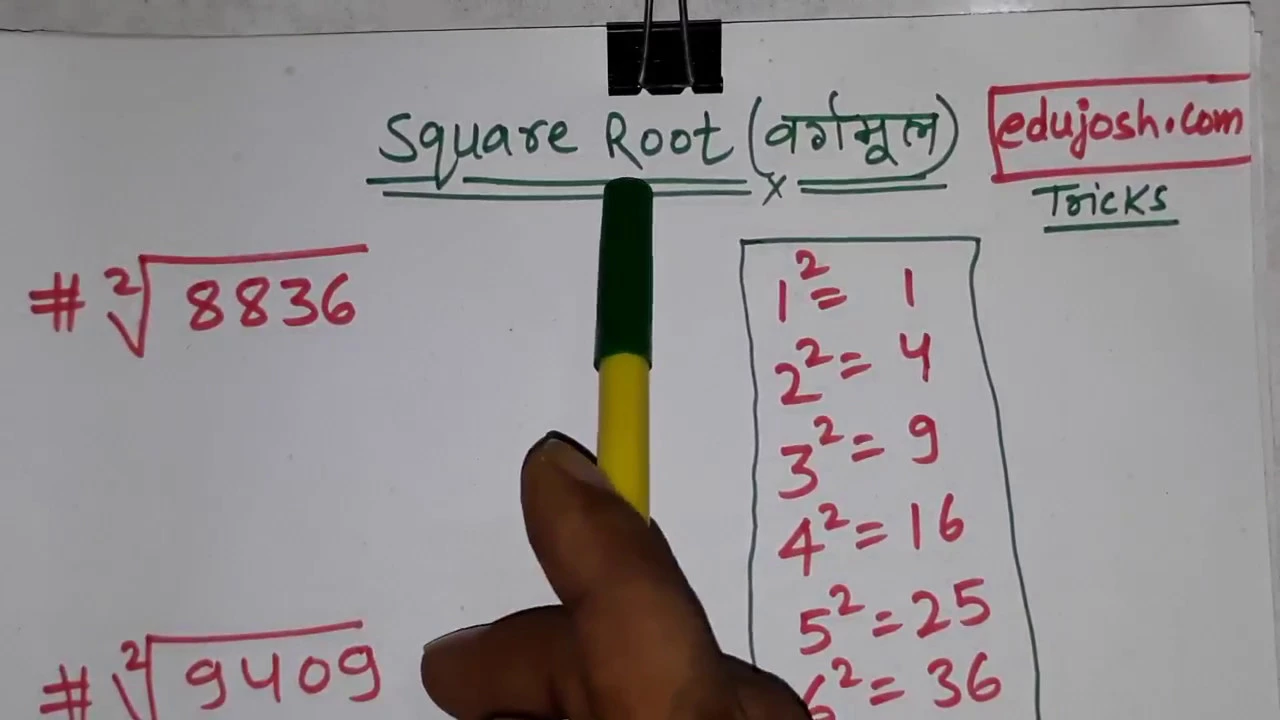 Square Root (वर्गमूल)
edujosh.com
Tricks
# ²√8836
1² = 1
2² = 4
3² = 9
4² = 16
5² = 25
6² = 36
# ²√9409